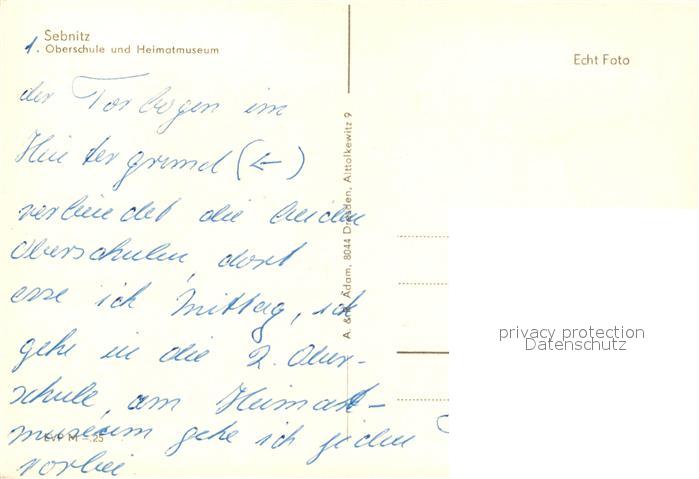 Sebnitz
1. Oberschule und Heimatmuseum
Echt Foto
der Torbogen im
Hintergrund (←)
verbindet die beiden
Oberschulen, dort
esse ich Mittag, ich
gehe in die 2. Ober-
schule, am Heimat-
museum gehe ich jeden
vorbei
EVP M -.25
A. & R. Adam, 8044 Dresden, Alttolkewitz 9
privacy protection
Datenschutz